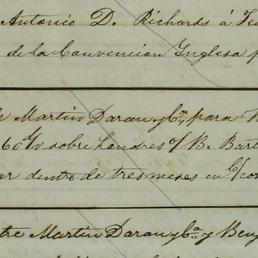 Antonio D. Richards á
de la Convencion Ynglesa p
Martin Daran y Cª, para
60 d/v sobre Londres of B. Bart
ar dentro de tres meses en
tre Martin Daran y Cª y Benj